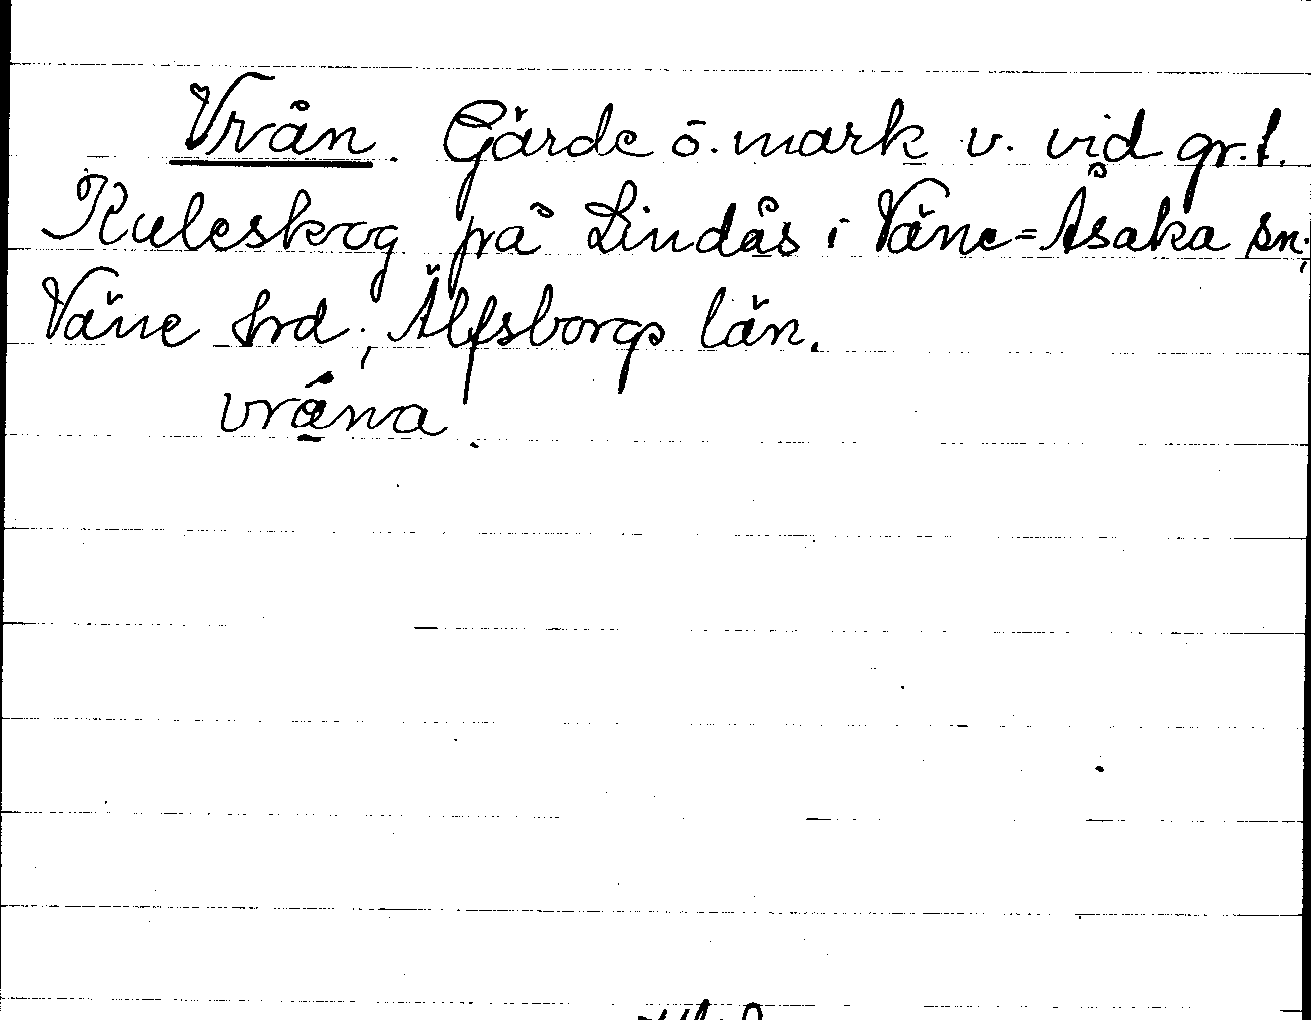 Vrån. Gärde o. mark v. vid gr. t.
Kuleskog på Lindås i Väne=Åsaka sn;
Väne hrd; Älfsborgs län.
vrǻ̱na